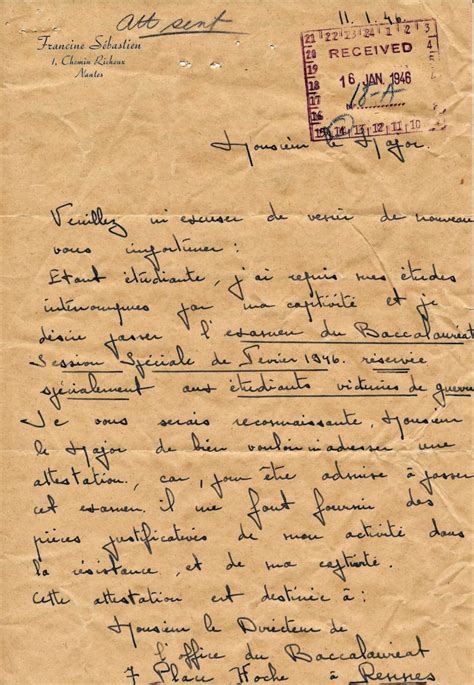 Att sent
11.1.46.
Francine Sébastien
1, Chemin Richeux
Nantes
21 22 23 24 1 2 3
20 4
19 RECEIVED 5
18 16 JAN. 1946
17 18-A
16 No.
15 14 13 12 11 10
Monsieur le Major.
Veuillez m'excuser de venir de nouveau
vous importuner :
Etant étudiante, j'ai repris mes études
interrompues par ma captivité et je
désire passer l'examen du Baccalauréat
Session Spéciale de Fevrier 1946. réservée
spécialement aux étudiants victimes de guerre
Je vous serais reconnaissante, Monsieur
le Major de bien vouloir m'adresser une
attestation, car, pour être admise à passer
cet examen. il me faut fournir des
pièces justificatives de mon activité dans
la résistance, et de ma captivité.
Cette attestation est destinée à :
Monsieur le Directeur de
l'office du Baccalaureat
7 Place Hoche à Rennes